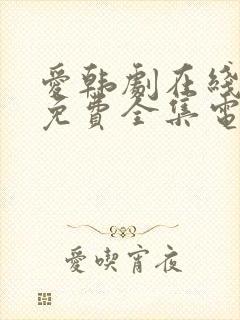 愛韩劇在綫
免費全集電
愛喫宵夜